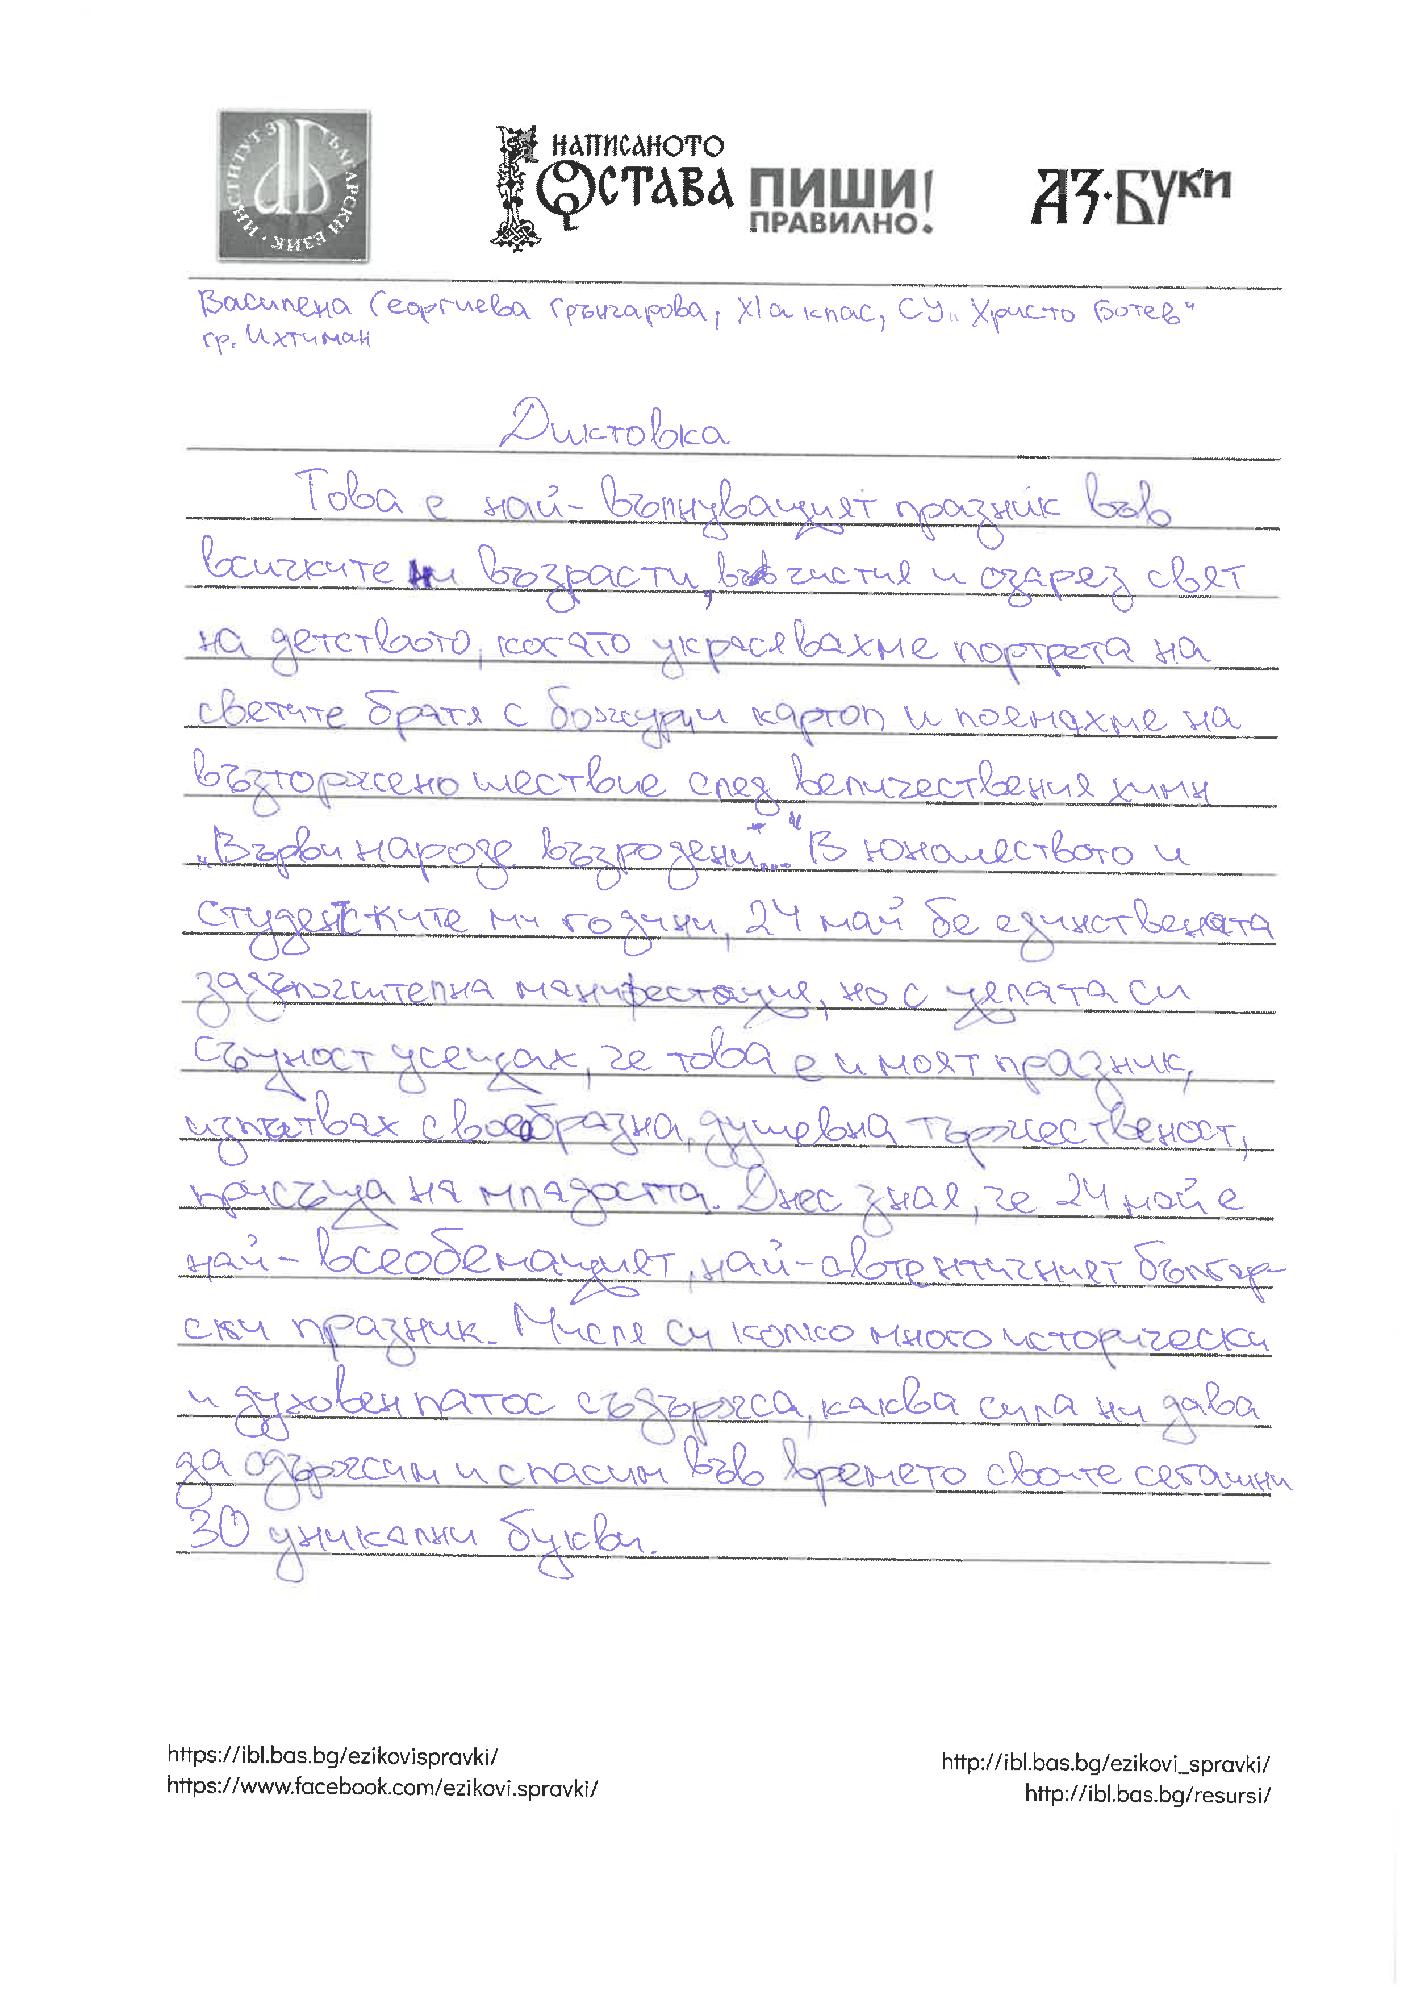 ИНСТИТУТ ЗА БЪЛГАРСКИ ЕЗИК
НАПИСАНОТО
ОСТАВА ПИШИ!
ПРАВИЛНО.
АЗ·БУКИ
Василена Георгиева Грънчарова, XIа клас, СУ „Христо Ботев“
гр. Ихтиман
Диктовка
Това е най-вълнуващият празник във
всичките ни възрасти, във чистия и озарез свят
на детството, когато украсявахме портрета на
светите братя с божури картоп и поемахме на
възторжено шествие след величествения химн
„Върви народе възродени...“ В юношеството и
студентските ми години, 24 май бе единствената
задължителна манифестация, но с цялата си
същност усещах, че това е и моят празник,
изпитвах своеобразна, душевна тържественост,
присъща на младостта. Днес зная, че 24 май е
най-всеобемащият, най-автентичният българ-
ски празник. Мисля си колко много исторически
и духовен патос съдържа, каква сила ни дава
да одържим и спасим във времето своите сегашни
30 уникални букви.
https://ibl.bas.bg/ezikovispravki/
https://www.facebook.com/ezikovi.spravki/
http://ibl.bas.bg/ezikovi_spravki/
http://ibl.bas.bg/resursi/